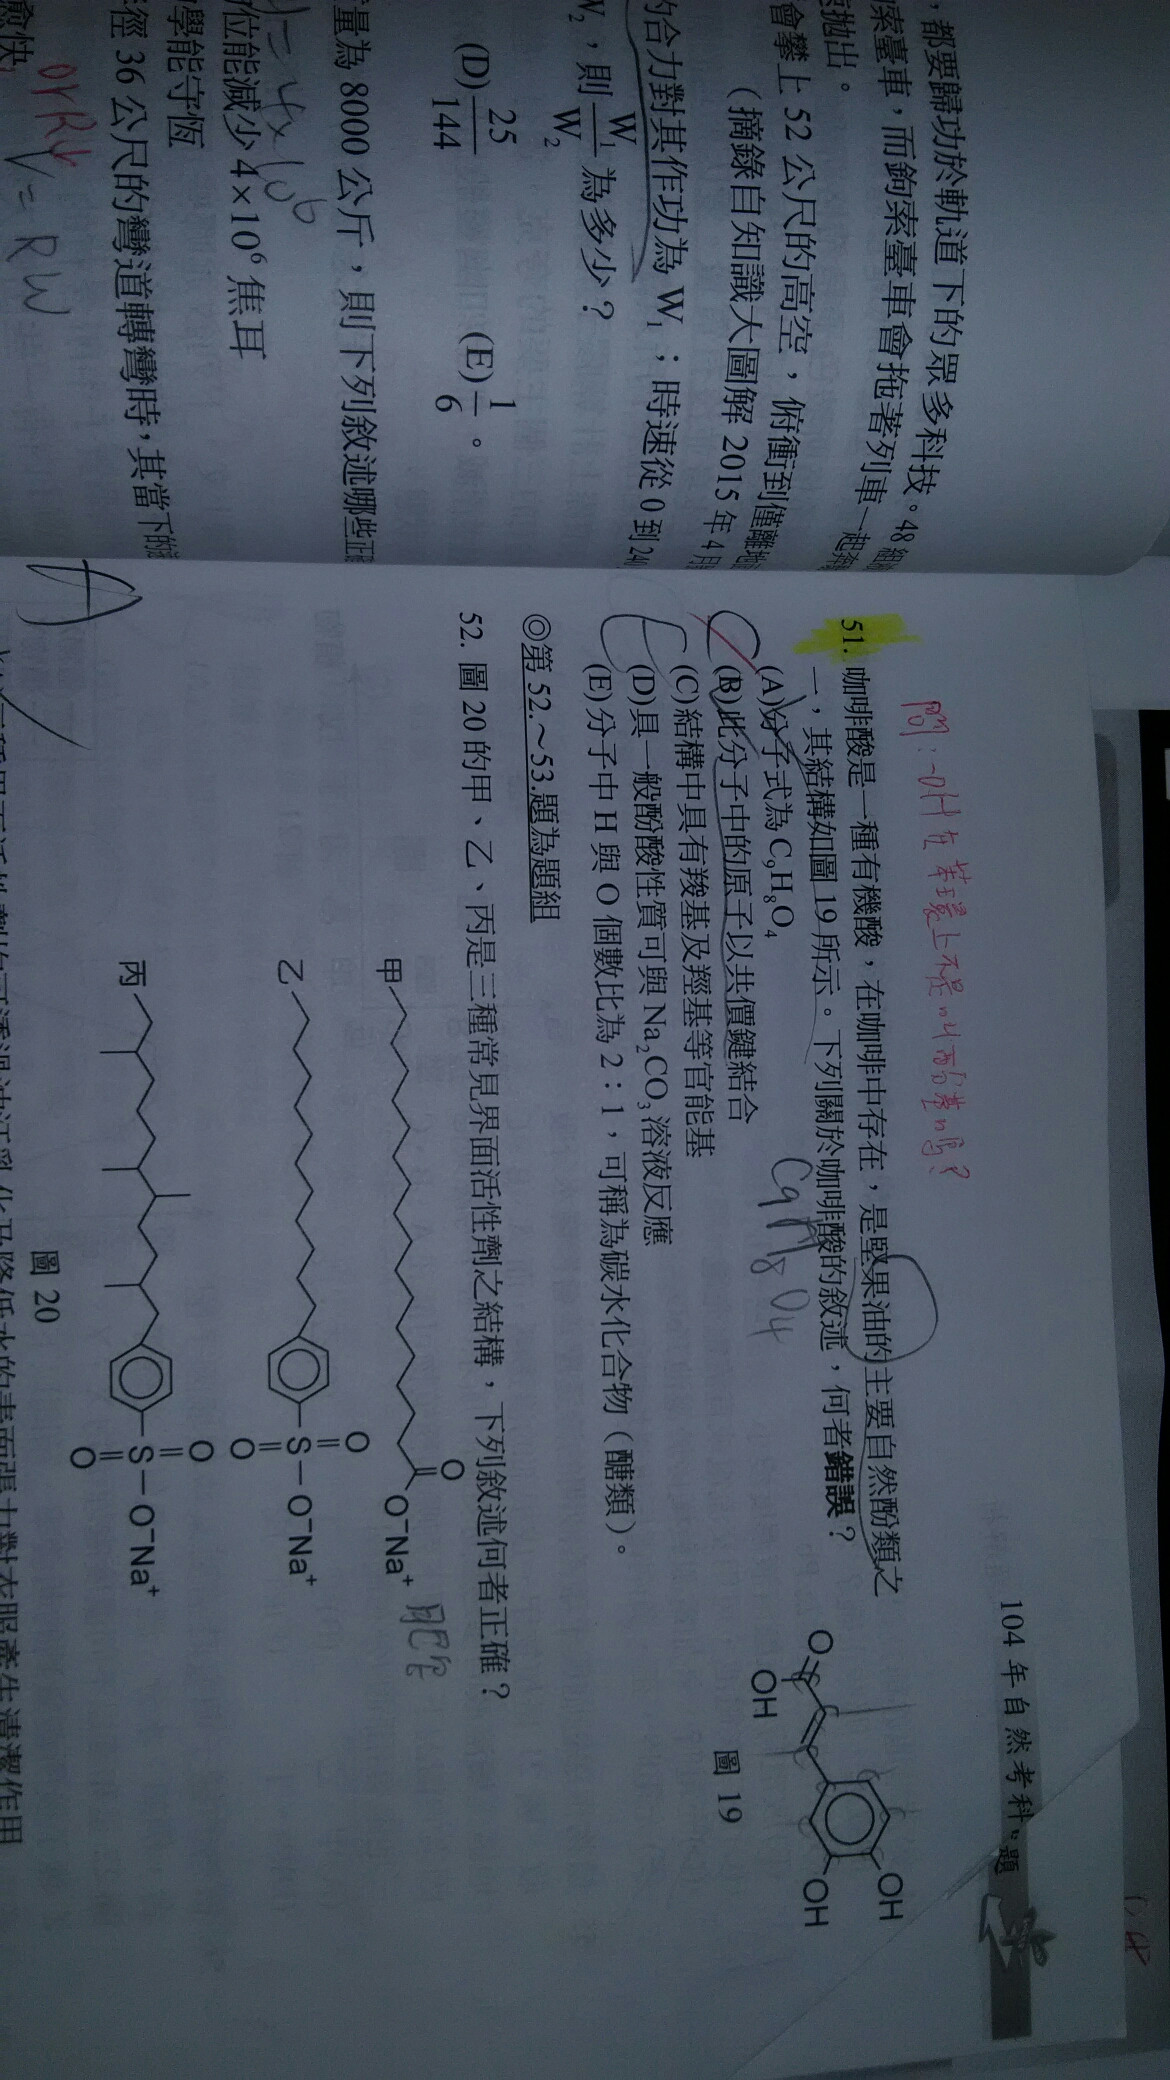 ，都要歸功於軌道下的眾多科技。48 組
索臺車，而鉤索臺車會拖著列車一起
拋出。
會攀上 52 公尺的高空，俯衝到僅離地
（摘錄自知識大圖解 2015 年 4 月
的合力對其作功為 W₁；時速從 0 到 240
W₂，則 W₁/W₂ 為多少？
(D) 25/144 (E) 1/6。
量為 8000 公斤，則下列敘述哪些正確
位能減少 4×10⁶ 焦耳
學能守恆
徑 36 公尺的彎道轉彎時，其當下的
愈快
V = RW
104 年自然考科 題
問：-OH 在苯環上不是叫酚基嗎？
51. 咖啡酸是一種有機酸，在咖啡中存在，是堅果油的主要自然酚類之
一，其結構如圖 19 所示。下列關於咖啡酸的敘述，何者錯誤？
(A)分子式為 C₉H₈O₄
C₉H₈O₄
(B)此分子中的原子以共價鍵結合
(C)結構中具有羧基及羥基等官能基
(D)具一般酚酸性質可與 Na₂CO₃ 溶液反應
(E)分子中 H 與 O 個數比為 2：1，可稱為碳水化合物（醣類）。
O
OH
OH
OH
圖 19
◎第 52.～53.題為題組
52. 圖 20 的甲、乙、丙是三種常見界面活性劑之結構，下列敘述何者正確？
甲
O
O⁻Na⁺
乙
O
S
O⁻Na⁺
O
丙
O
S
O⁻Na⁺
O
圖 20